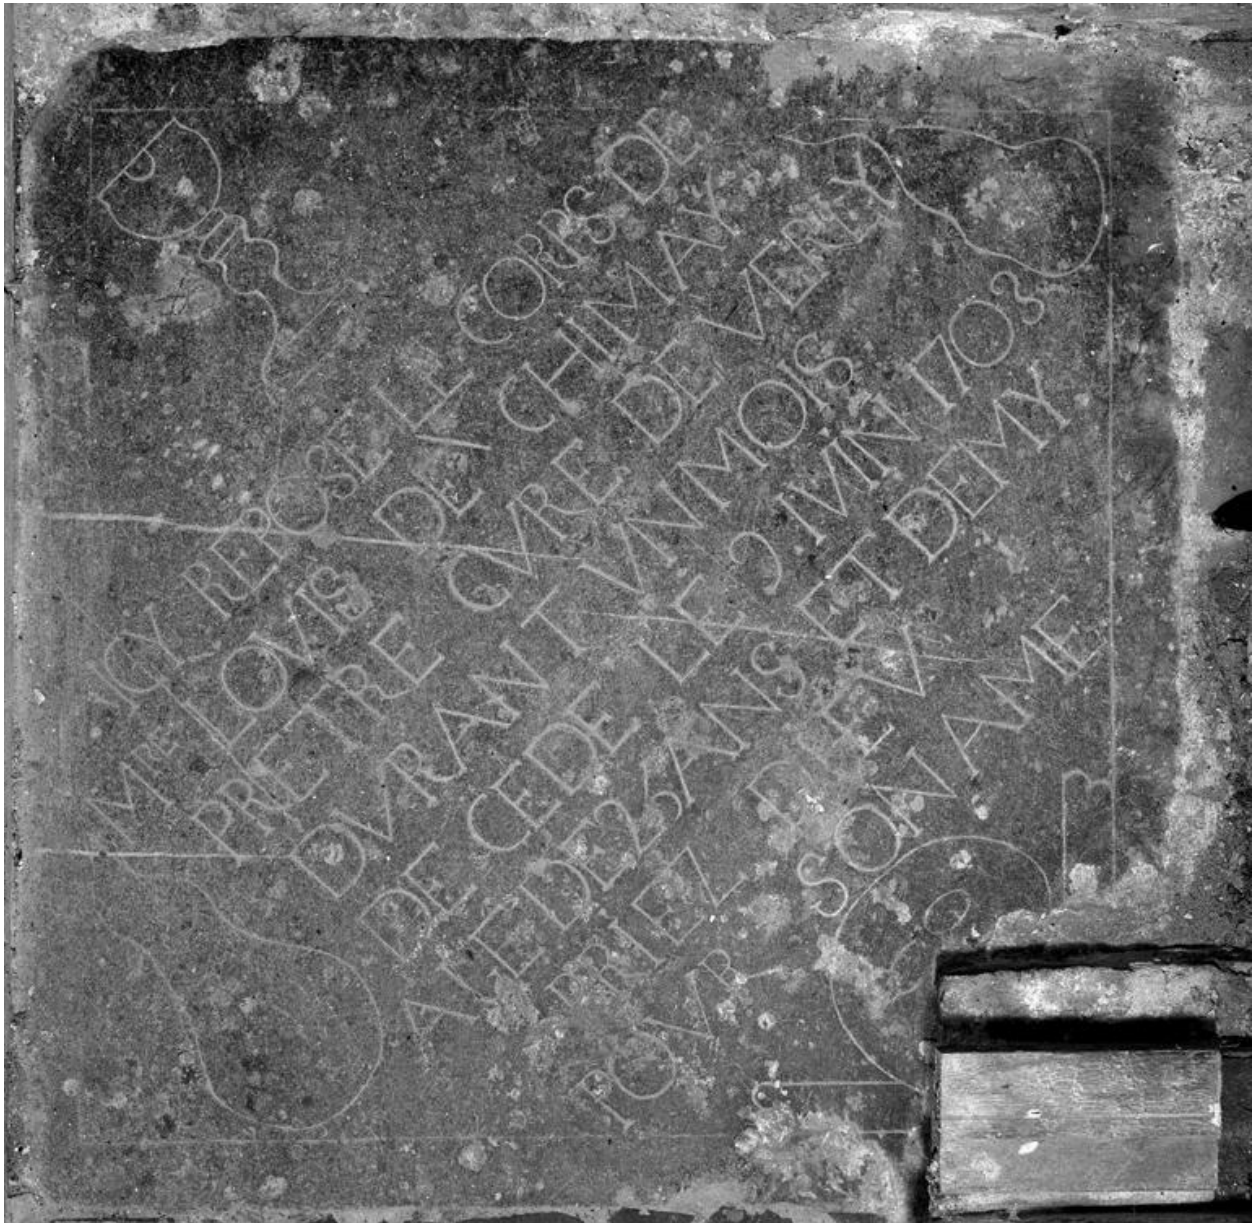 ICY REPOSE LE CORPS DE
Mre LOVIS DEV CHIMAY
PRETRE CVRE DE VERLY
DVRANT VN MOIS
DECEDE LE 5 IVIN 1708
AGE DE 23 ANS ET DEMY
PRIEZ DIEV
POVR SON AME